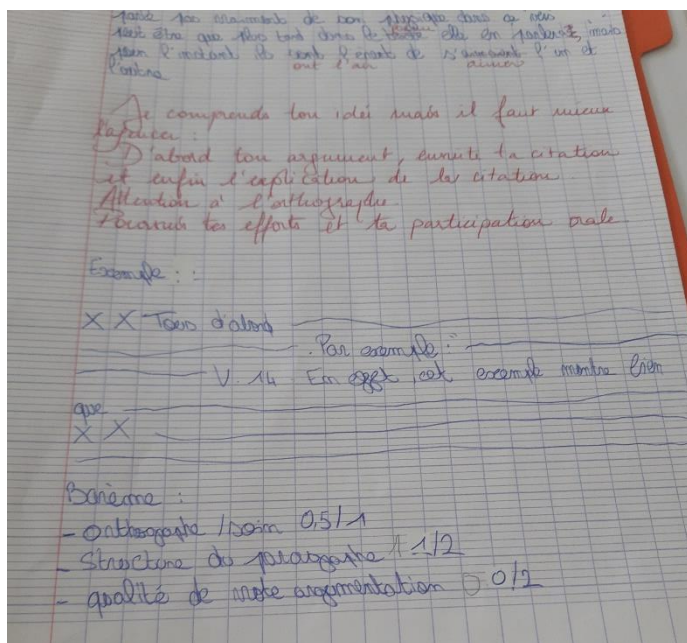 passe pas de bon dans ce vers
peut être que plus tard dans le elle en parlerez, mais
pour l'instant ils sont l'épant de s'
ont l'air aimer l'un et
l'autre
Je comprends ton idéi mais il faut mieux
l'apuier :
D'abord ton argument, ensuite ta citation
et enfin l'explication de la citation.
Attention à l'orthographe
Poursuis tes efforts et ta participation orale
Exemple :
X X Tous d'abord
. Par exemple :
V. 14 En effet, cet exemple montre bien
que
X X
Barème :
- Orthographe / soin 0,5/1
- Structure du paragraphe 1/2
- qualité de votre argumentation 0/2